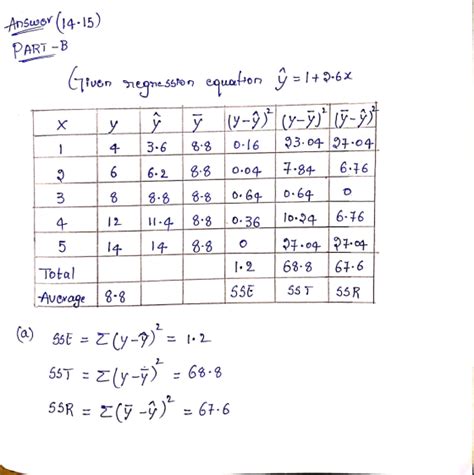 Answer (14.15)
PART-B
Given regression equation ŷ = 1+2.6x
x y ŷ ȳ (y-ŷ)² (y-ȳ)² (ȳ-ŷ)²
1 4 3.6 8.8 0.16 23.04 27.04
2 6 6.2 8.8 0.04 7.84 6.76
3 8 8.8 8.8 0.64 0.64 0
4 12 11.4 8.8 0.36 10.24 6.76
5 14 14 8.8 0 27.04 27.04
Total 1.2 68.8 67.6
Average 8.8 SSE SST SSR
(a) SSE = Σ(y-ŷ)² = 1.2
SST = Σ(y-ȳ)² = 68.8
SSR = Σ(ȳ-ŷ)² = 67.6